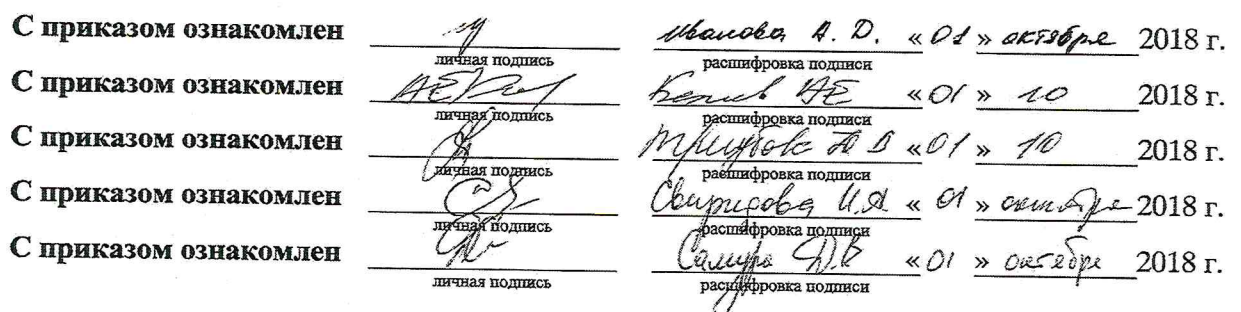 С приказом ознакомлен Иванова А. D. «01» октября 2018 г.
личная подпись расшифровка подписи
С приказом ознакомлен АЕ «01» 10 2018 г.
личная подпись расшифровка подписи
С приказом ознакомлен Ю В «01» 10 2018 г.
личная подпись расшифровка подписи
С приказом ознакомлен Свиридова И.А «01» октября 2018 г.
личная подпись расшифровка подписи
С приказом ознакомлен Самура Д.В «01» октября 2018 г.
личная подпись расшифровка подписи